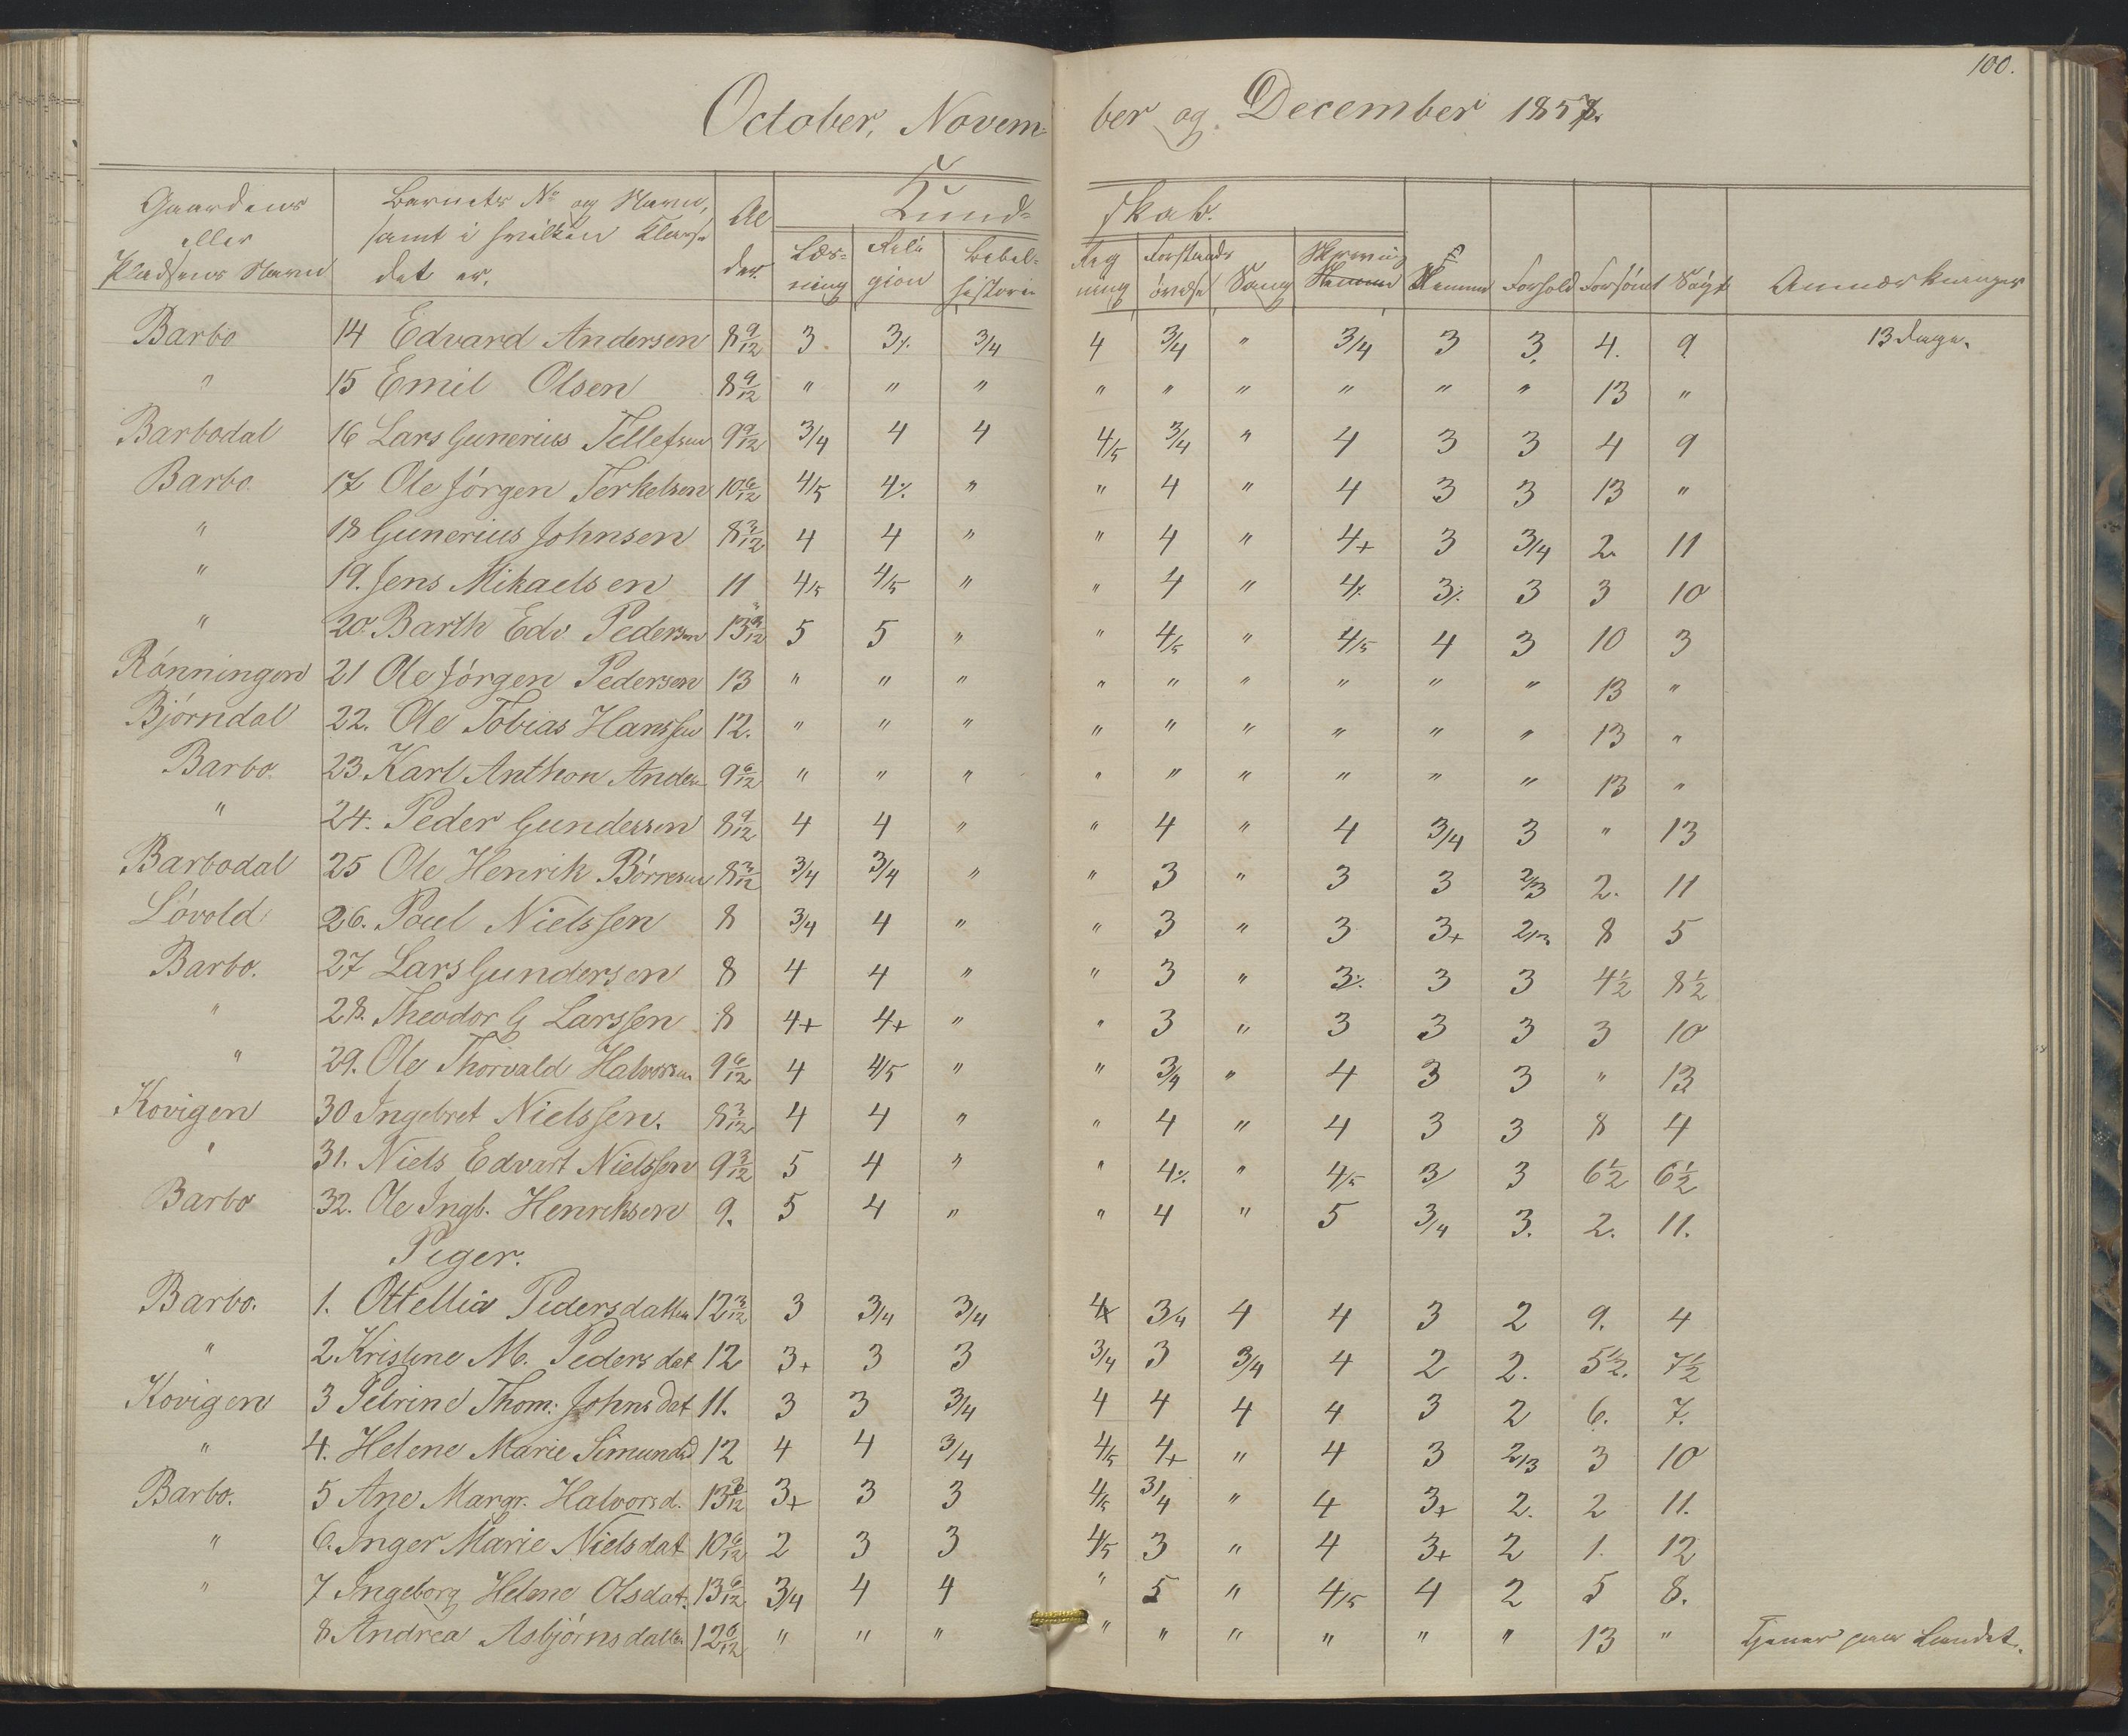 100.
October, Novem= ber og December 1857.
Gaardens eller Pladsens Navn | Barnets No og Navn, samt i hvilken Klasse det er. | Al der. | Kund= skab. | Læs= ning | Reli gion | Bibel= historie | Reg ning | Forstands øvelse | Sang | Skrivning | Nemme | Forhold | Forsömt | Sögt | Anmærkninger
Barbo 14 Edvard Andersen 8 9/12 3 3% 3/4 4 3/4 " 3/4 3 3. 4. 9 13 Dage.
" 15 Emil Olsen 8 9/12 " " " " " " " " " 13 "
Barbodal 16 Lars Gunerius Tellefsen 9 9/12 3/4 4 4 4/5 3/4 " 4 3 3 4 9
Barbo. 17 Ole Jörgen Terkelsen 10 6/12 4/5 4% " " 4 " 4 3 3 13 "
" 18 Gunerius Johnsen 8 3/12 4 4 " " 4 " 4+ 3 3/4 2. 11
" 19. Jens Mikaelsen 11 4/5 4/5 " " 4 " 4% 3% 3 3 10
" 20. Barth Edv Pedersen 13 9/12 5 5 " " 4/5 " 4/5 4 3 10 3
Rönningen 21 Ole Jörgen Pedersen 13 " " " " " " " " " 13 "
Björndal 22. Ole Tobias Hanssen 12. " " " " " " " " " 13 "
Barbo. 23. Karl Anthon Anders 9 6/12 " " " " " " " " " 13 "
" 24. Peder Gundersen 8 9/12 4 4 " " 4 " 4 3/4 3 " 13
Barbodal 25 Ole Henrik Börresen 8 3/12 3/4 3/4 " " 3 " 3 3 2/3 2. 11
Lövold 26. Poul Nielssen 8 3/4 4 " " 3 " 3 3+ 2/3 8 5
Barbo. 27 Lars Gundersen 8 4 4 " " 3 " 3% 3 3 4 1/2 8 1/2
" 28. Theodor G Larssen 8 4+ 4+ " " 3 " 3 3 3 3 10
" 29. Ole Thorvald Halvorsen 9 6/12 4 4/5 " " 3/4 " 4 3 3 " 13
Kovigen 30 Ingebret Nielssen. 8 3/12 4 4 " " 4 " 4 3 3 8 4
" 31. Niels Edvart Nielssen 9 3/12 5 4 " " 4% " 4/5 3 3 6 1/2 6 1/2
Barbo 32. Ole Ingb. Henriksen 9. 5 4 " " 4 " 5 3/4 3. 2. 11.
Piger.
Barbo. 1. Ottellia Pedersdatter 12 3/12 3 3/4 3/4 4 3/4 4 4 3 2 9. 4
" 2. Kristine M. Peders dat 12 3+ 3 3 3/4 3 3/4 4 2 2. 5 1/2. 7 1/2
Kovigen 3 Petrine Thom: Johns dat 11. 3 3 3/4 4 4 4 4 3 2 6. 7.
" 4. Helene Marie Simunds d 12 4 4 3/4 4/5 4+ " 4 3 2/3 3 10
Barbo. 5 Ane Margr. Halvors d. 13 3+ 3 3 4/5 3/4 " 4 3+ 2. 2 11.
" 6. Inger Marie Niels dat 10 6/12 2 3 3 4/5 3 " 4 3+ 2 1. 12
" 7 Ingeborg Helene Olsdat. 13 6/12 3/4 4 4 " 5 " 4/5 4 2 5 8.
" 8. Andrea Asbjörnsdatter 12 6/12 " " " " " " " " " 13 " Tjener paa Landet.